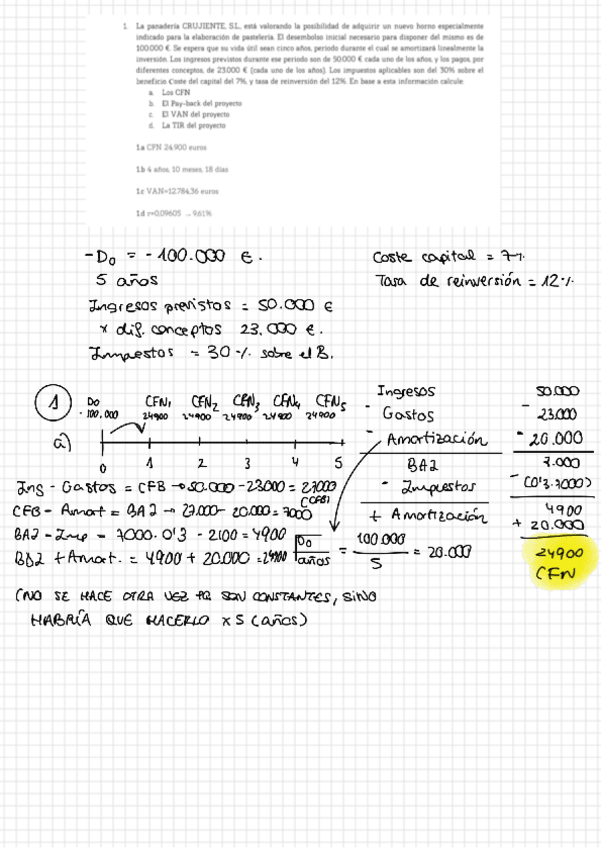 1. La panadería CRUJIENTE, S.L., está valorando la posibilidad de adquirir un nuevo horno especialmente
indicado para la elaboración de pastelería. El desembolso inicial necesario para disponer del mismo es de
100.000 €. Se espera que su vida útil sean cinco años, periodo durante el cual se amortizará linealmente la
inversión. Los ingresos previstos durante ese periodo son de 50.000 € cada uno de los años, y los pagos, por
diferentes conceptos, de 23.000 € (cada uno de los años). Los impuestos aplicables son del 30% sobre el
beneficio. Coste del capital del 7%, y tasa de reinversión del 12%. En base a esta información calcule:
a. Los CFN
b. El Pay-back del proyecto
c. El VAN del proyecto
d. La TIR del proyecto
1.a CFN 24.900 euros
1.b 4 años, 10 meses, 18 días
1.c VAN=12784,36 euros
1.d r=0,09605 → 9,61%
- D₀ = - 100.000 €.
Coste capital = 7%
5 años
Tasa de reinversión = 12%
Ingresos previstos = 50.000 €
x dif. conceptos 23.000 €.
Impuestos = 30% sobre el B.
1
Do CFN₁ CFN₂ CFN₃ CFN₄ CFN₅
-100.000 24900 24900 24900 24900 24900
a)
0 1 2 3 4 5
Ingresos 50.000
- Gastos - 23.000
- Amortización - 20.000
BAI 7.000
- Impuestos - (0'3·7000)
4900
+ Amortización + 20.000
24900
CFN
Ing - Gastos = CFB → 50.000 - 23000 = 27000
(CFB)
CFB - Amort = BAI → 27.000 - 20.000 = 7000
BAI - Imp = 7000 · 0'3 - 2100 = 4900
BDI + Amort. = 4900 + 20.000 = 24900
Do / años = 100.000 / 5 = 20.000
(NO SE HACE OTRA VEZ PQ SON CONSTANTES, SINO
HABRÍA QUE HACERLO x 5 (años)